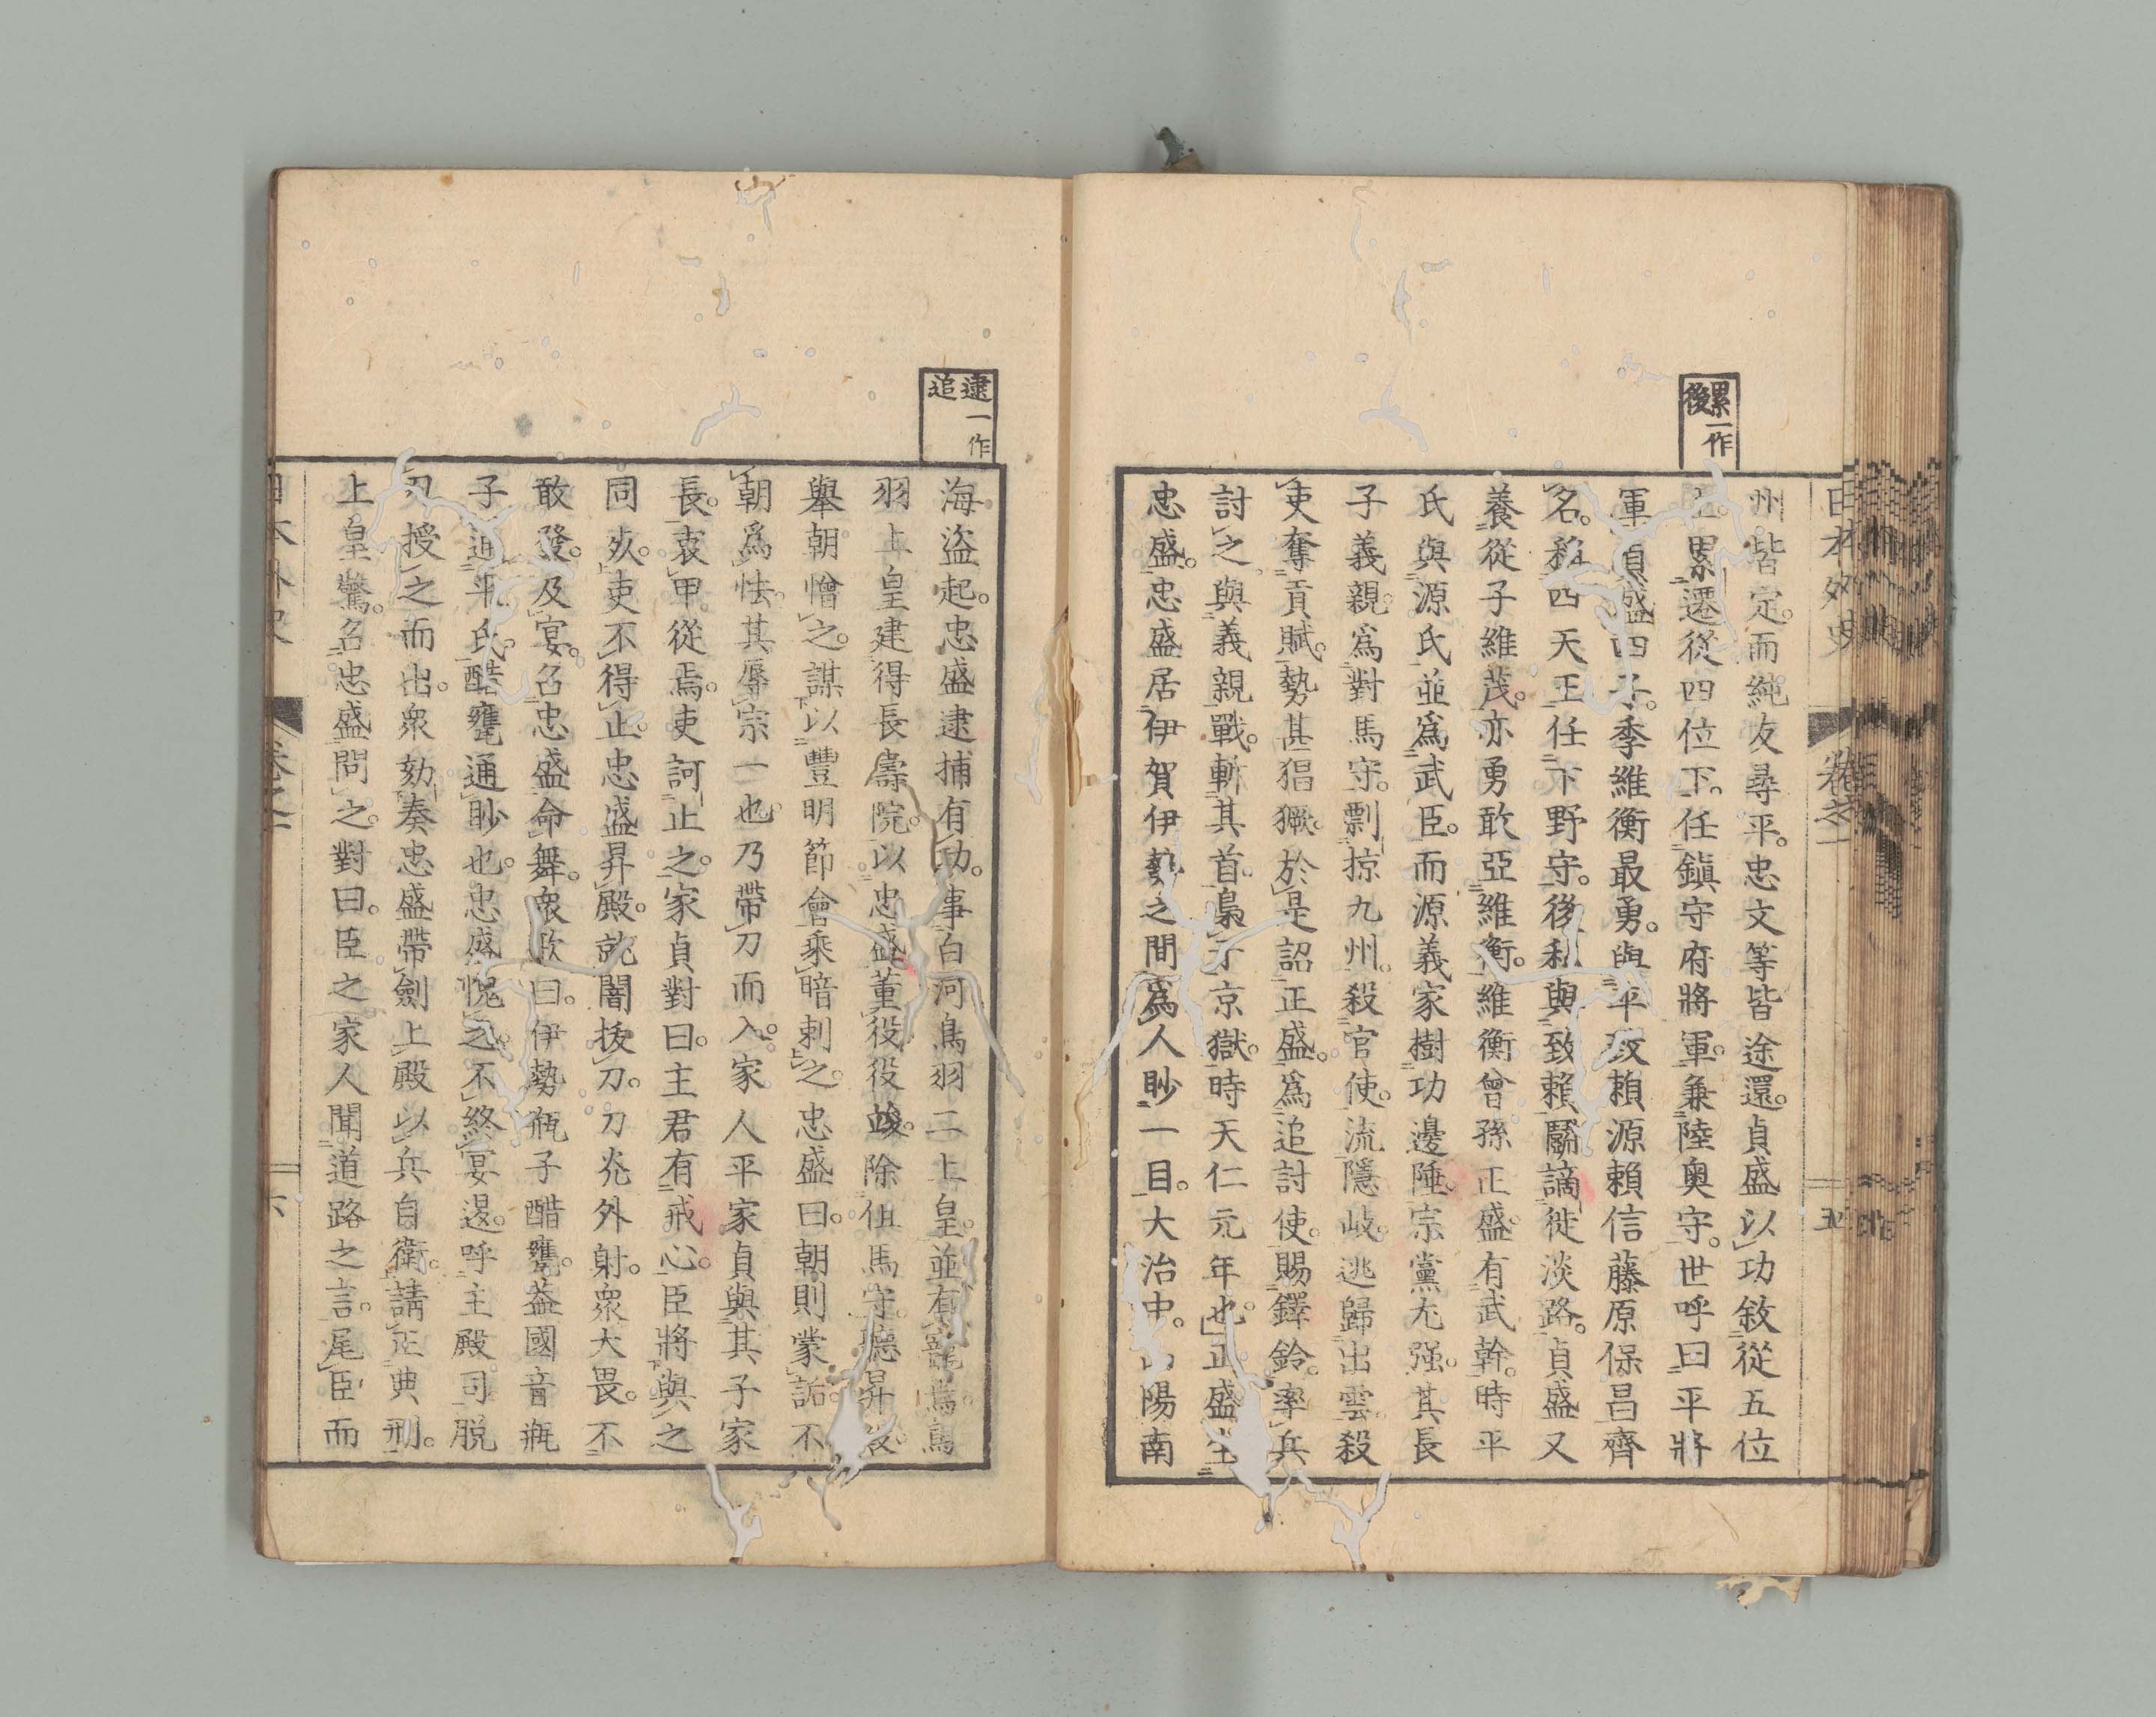 日本外史 卷之一 五
累一作
後
州皆定。而純友尋平。忠文等皆途還。貞盛以功敘從五位
上。累遷從四位下。任鎭守府將軍。兼陸奥守。世呼曰平將
軍。貞盛四子。季維衡最勇。與平致賴源賴信藤原保昌齊
名。稱四天王。任下野守。後私與致賴鬭。謫徙淡路。貞盛又
養從子維茂。亦勇敢亞維衡。維衡曾孫正盛。有武幹。時平
氏與源氏並爲武臣。而源義家樹功邊陲。宗黨尤强。其長
子義親。爲對馬守。剽掠九州。殺官使。流隱岐。逃歸出雲。殺
吏奪貢賦。勢甚猖獗。於是詔正盛。爲追討使。賜鐸鈴。率兵
討之。與義親戰。斬其首。梟于京獄。時天仁元年也。正盛生
忠盛。忠盛居伊賀伊勢之間。爲人眇一目。大治中。山陽南
逮一作
追
海盜起。忠盛逮捕有功。事白河鳥羽二上皇。並有寵焉。鳥
羽上皇建得長壽院。以忠盛董役。役竣。除但馬守。聽昇殿。
擧朝憎之。謀以豐明節會乘暗刺之。忠盛曰。朝則蒙詬。不
朝爲怯。其辱宗一也。乃帶刀而入。家人平家貞與其子家
長。衷甲從焉。吏訶止之。家貞對曰。主君有戒心。臣將與之
同死。吏不得止。忠盛昇殿。就闇拔刀。刀光外射。衆大畏。不
敢發。及宴。召忠盛命舞。衆歌曰。伊勢瓶子醋甕。蓋國音瓶
子通平氏。醋甕通眇也。忠盛愧之。不終宴退。呼主殿司脫
刀授之而出。衆劾奏忠盛帶劍上殿以兵自衛。請正典刑。
上皇驚。召忠盛問之。對曰。臣之家人聞道路之言。尾臣而
日本外史 卷之一 六